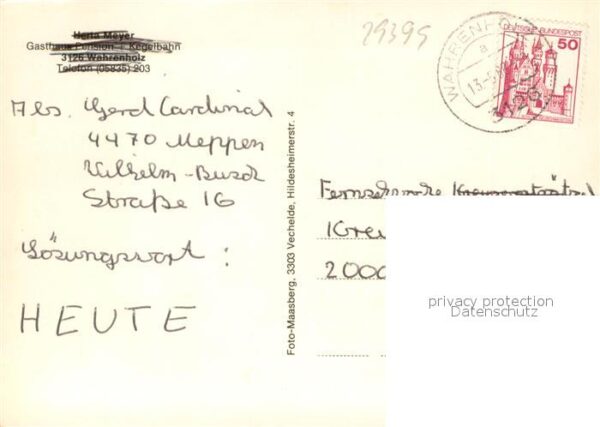 Herta Meyer
Gasthaus Pension + Kegelbahn
3125 Wahrenholz
Telefon (05835) 203
29399
WAHRENHO
a
13.-5
3125
DEUTSCHE BUNDESPOST
50
Abs. Gerd Cardinal
4470 Meppen
Wilhelm-Busch
Straße 16
Lösungswort :
HEUTE
Foto-Maasberg, 3303 Vechelde, Hildesheimerstr. 4
Fernsehwoche
Kreu
2000
privacy protection
Datenschutz